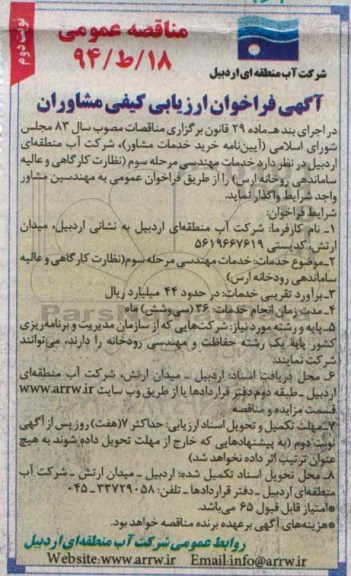 نوبت دوم
مناقصه عمومی
۱۸/ط/۹۴
شرکت آب منطقه‌ای اردبیل
آگهی فراخوان ارزیابی کیفی مشاوران
در اجرای بند هـ ماده ۲۹ قانون برگزاری مناقصات مصوب سال ۸۳ مجلس
شورای اسلامی (آیین‌نامه خرید خدمات مشاور)، شرکت آب منطقه‌ای
اردبیل در نظر دارد خدمات مهندسی مرحله سوم (نظارت کارگاهی و عالیه
ساماندهی روخانه ارس) را از طریق فراخوان عمومی به مهندسین مشاور
واجد شرایط واگذار نماید.
شرایط فراخوان:
۱- نام کارفرما: شرکت آب منطقه‌ای اردبیل به نشانی اردبیل، میدان
ارتش، کدپستی ۵۶۱۹۶۶۷۶۱۹
۲-موضوع خدمات: خدمات مهندسی مرحله سوم(نظارت کارگاهی و عالیه
ساماندهی رودخانه ارس)
۳-برآورد تقریبی خدمات: در حدود ۴۴ میلیارد ریال
۴-مدت زمان انجام خدمات: ۳۶ (سی‌وشش) ماه
۵-پایه و رشته مورد نیاز: شرکت‌هایی که از سازمان مدیریت و برنامه‌ریزی
کشور پایه یک رشته حفاظت و مهندسی رودخانه را دارند، می‌توانند
شرکت نمایند.
۶- محل دریافت اسناد: اردبیل ـ میدان ارتش، شرکت آب منطقه‌ای
اردبیل ـ طبقه دوم دفتر قراردادها یا از طریق وب سایت www.arrw.ir
قسمت مزایده و مناقصه
۷-مهلت تکمیل و تحویل اسناد ارزیابی: حداکثر ۷(هفت) روز پس از آگهی
نوبت دوم (به پیشنهادهایی که خارج از مهلت تحویل داده شوند به هیچ
عنوان ترتیب اثر داده نخواهد شد)
۸- محل تحویل اسناد تکمیل شده: اردبیل ـ میدان ارتش ـ شرکت آب
منطقه‌ای اردبیل ـ دفتر قراردادها ـ تلفن: ۳۳۷۲۹۰۵۸ـ۰۴۵
*امتیاز قابل قبول ۶۵ می‌باشد.
*هزینه‌های آگهی برعهده برنده مناقصه خواهد بود.
روابط عمومی شرکت آب منطقه‌ای اردبیل
Website:www.arrw.ir Email:info@arrw.ir